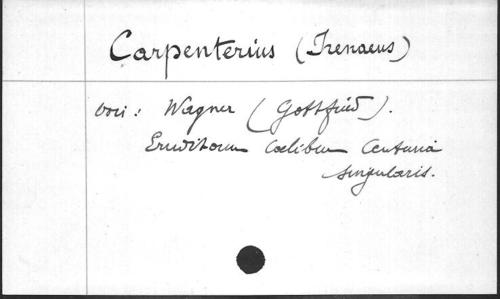 Carpenterius (Irenaeus)
voir : Wagner (Gottfried).
Eruditorum Coelibum Centuria
singularis.